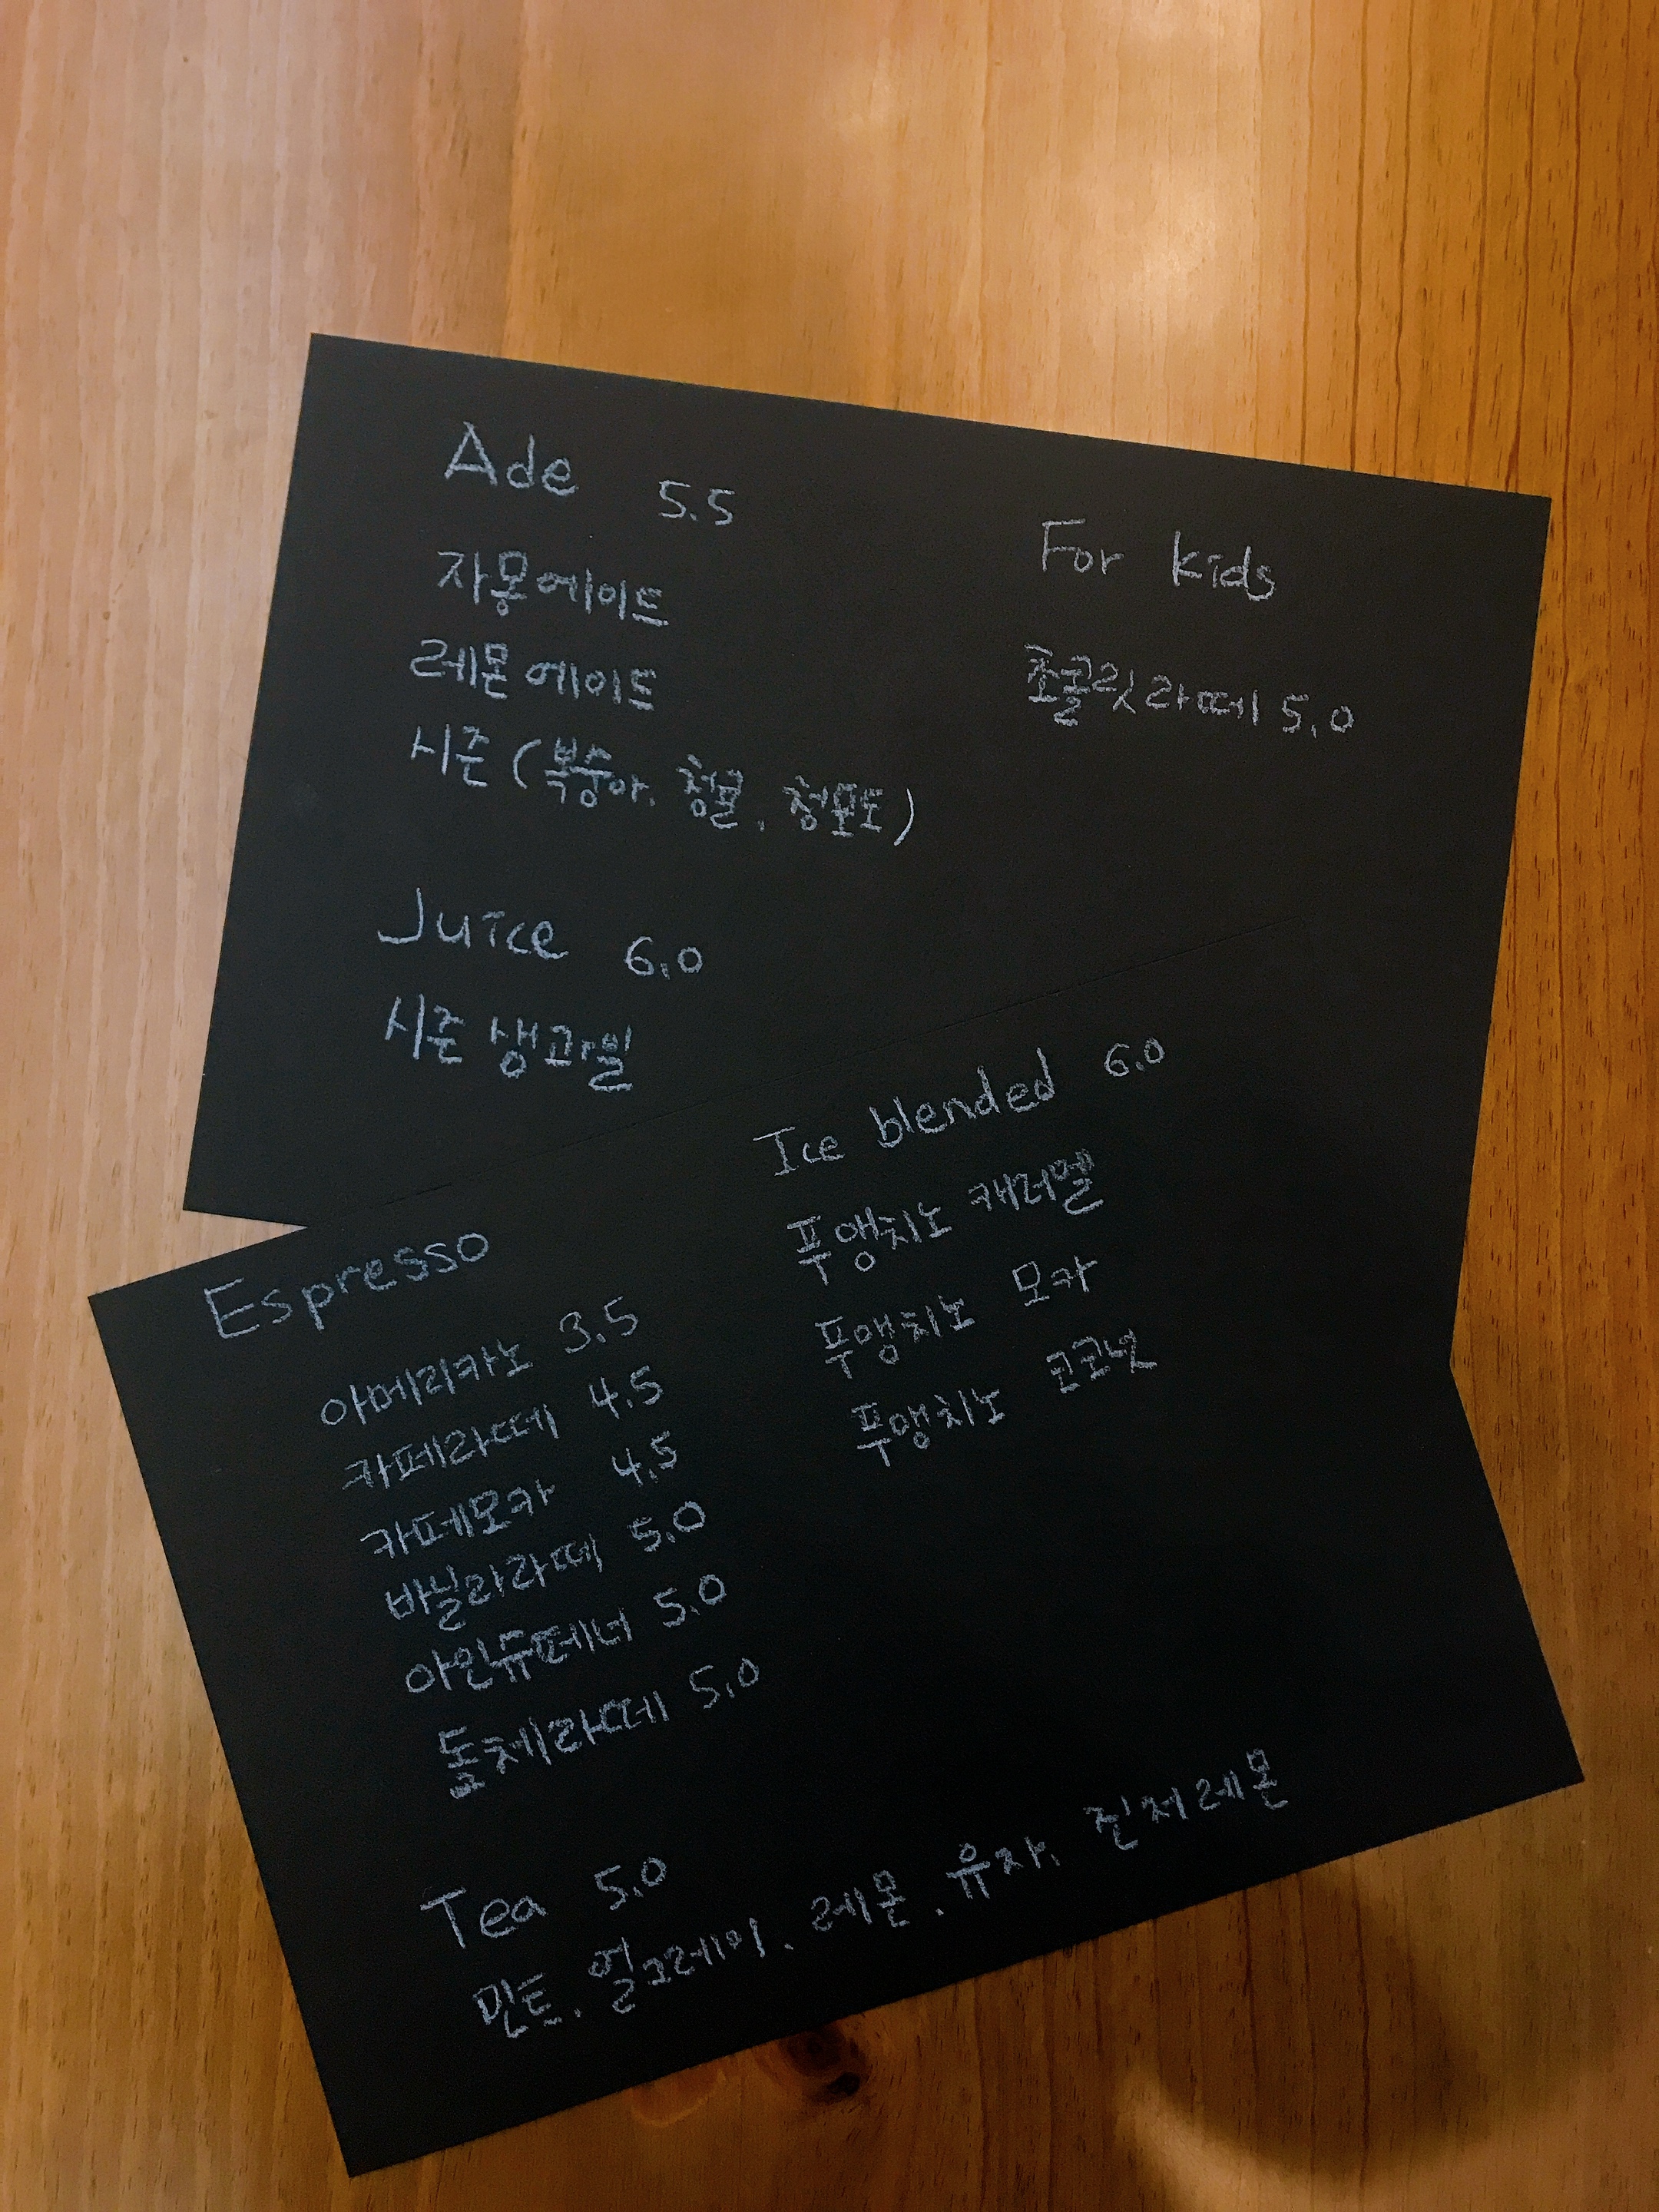 Ade 5.5
자몽에이드
레몬에이드
시즌 (복숭아, 청귤, 청포도)
Juice 6.0
시즌 생과일
For kids
쵸콜릿라떼 5.0
Espresso
아메리카노 3.5
카페라떼 4.5
카페모카 4.5
바닐라라떼 5.0
아인슈페너 5.0
돌체라떼 5.0
Ice blended 6.0
푸앵치노 캐러멜
푸앵치노 모카
푸앵치노 코코넛
Tea 5.0
민트, 얼그레이, 레몬, 유자, 진저레몬